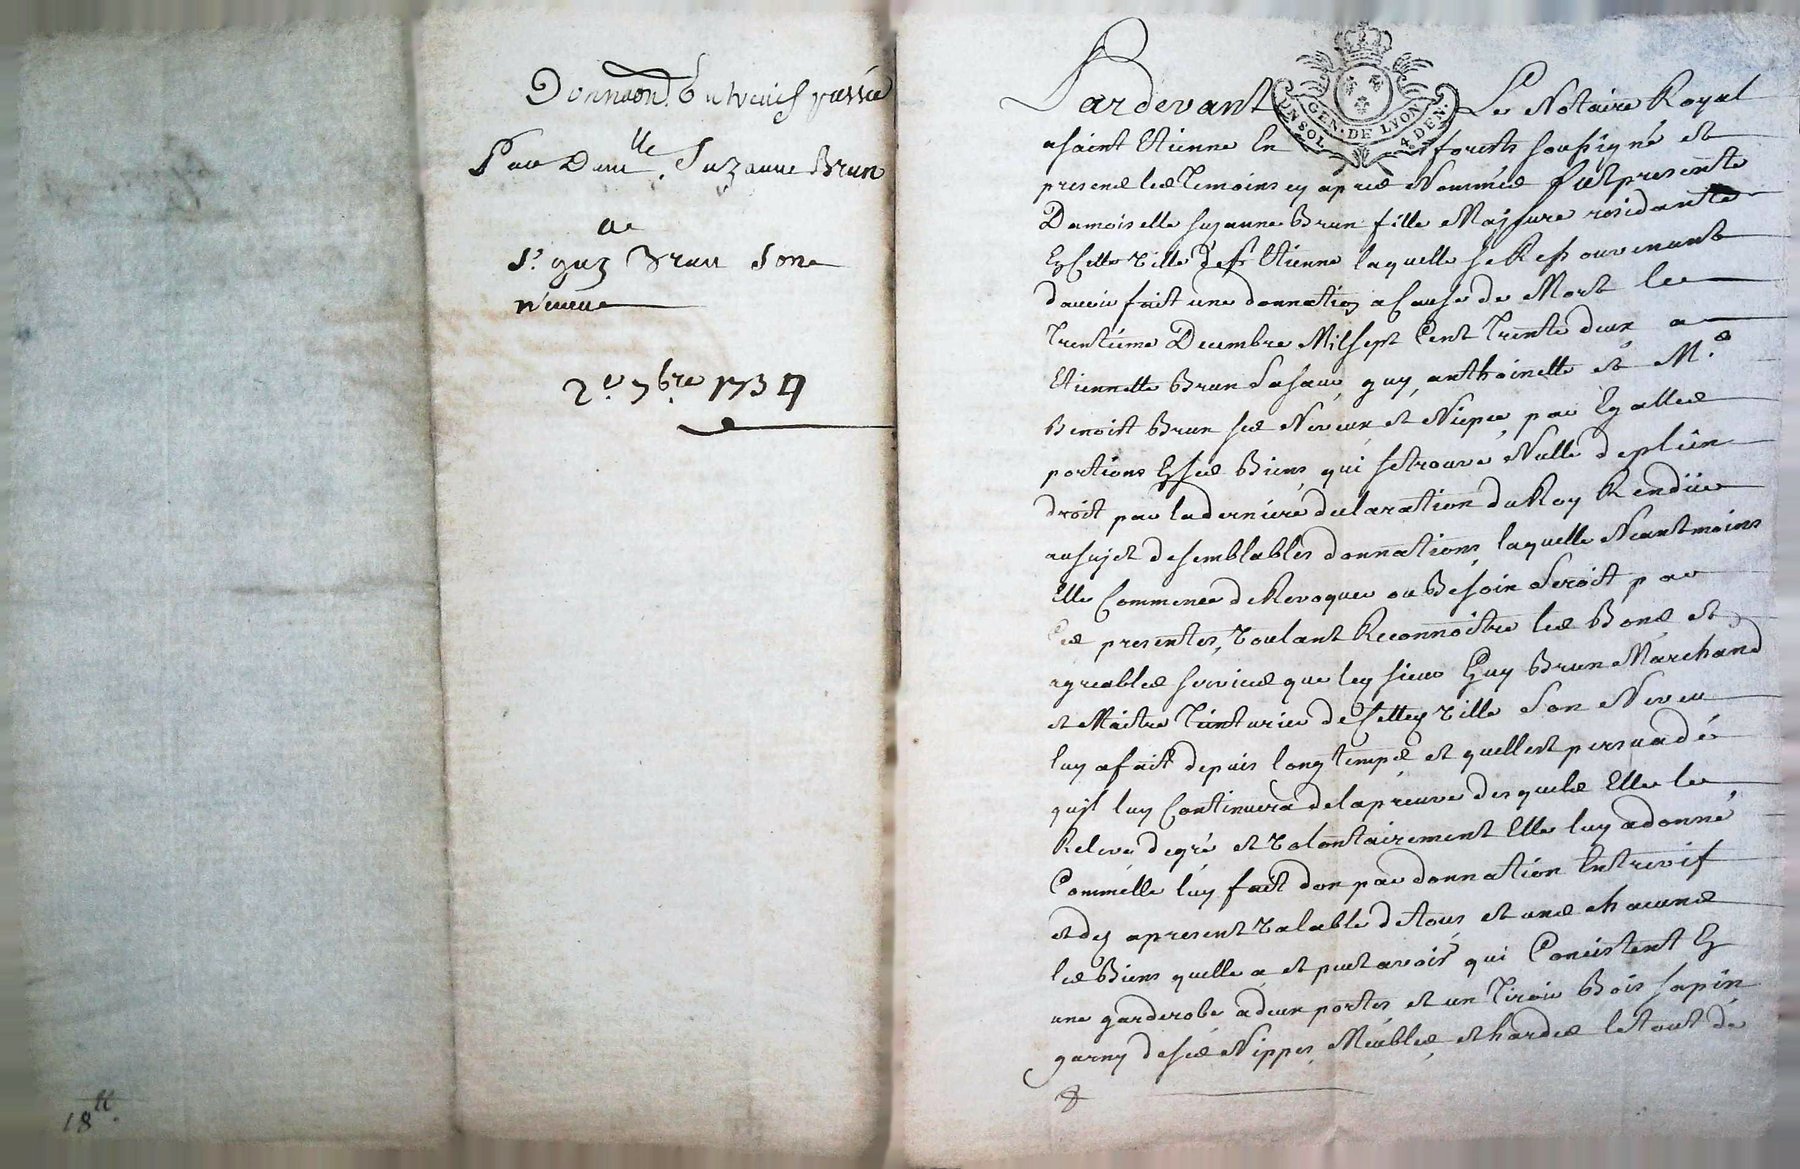 Donnaon. Entrevifs passée
Par Dam lle. Suzanne Brun
a
Sr. guy Brun Son
neveu
2e. 7bre 1734
18 tt.
Pardevant Le Notaire Royal
GEN. DE LYON
UN SOL 4 DEN.
a saint Etienne En forests soussigné et
presens les temoins cy apres Nommés fut presente
Damoiselle suzanne Brun fille Majeure residante
En Cette Ville de st Etienne laquelle se Ressouvenant
davoir fait une donnation a Cause de Mort le
Trentieme Decembre Mil sept Cent Trente deux a
Etiennette Brun guy, anthoinette et Me.
Benoist Brun ses Neveux et Niepces par Egalles
portions En ses Biens, qui se trouve Nulle de plein
droit par la derniere declaration du Roy Rendüe
au sujet de semblables donnations, laquelle Neantmoins
Elle Commence de Revoquer ou Besoin Seroit par
Ces presentes, Voulant Reconnoitre les Bons et
agreables services que ley sieur Guy Brun Marchand
et Maitre Teinturier de Cettey Ville Son Neveu
luy a fait depuis long temps et quelle est persuadé
quil luy Continuera de la preuve desquels Elle le
Releve de gré et Volontairement Elle luy a donné
Comme Elle luy fait don par donnation Entrevif
et dez apresent Valable de tous et uns chacuns
les Biens quelle a et peut avoir qui Consistent En
une garderobe a deux portes et un Tiroir Bois sapin
garny de ses Nippes, Meubles, et hardes le tout de